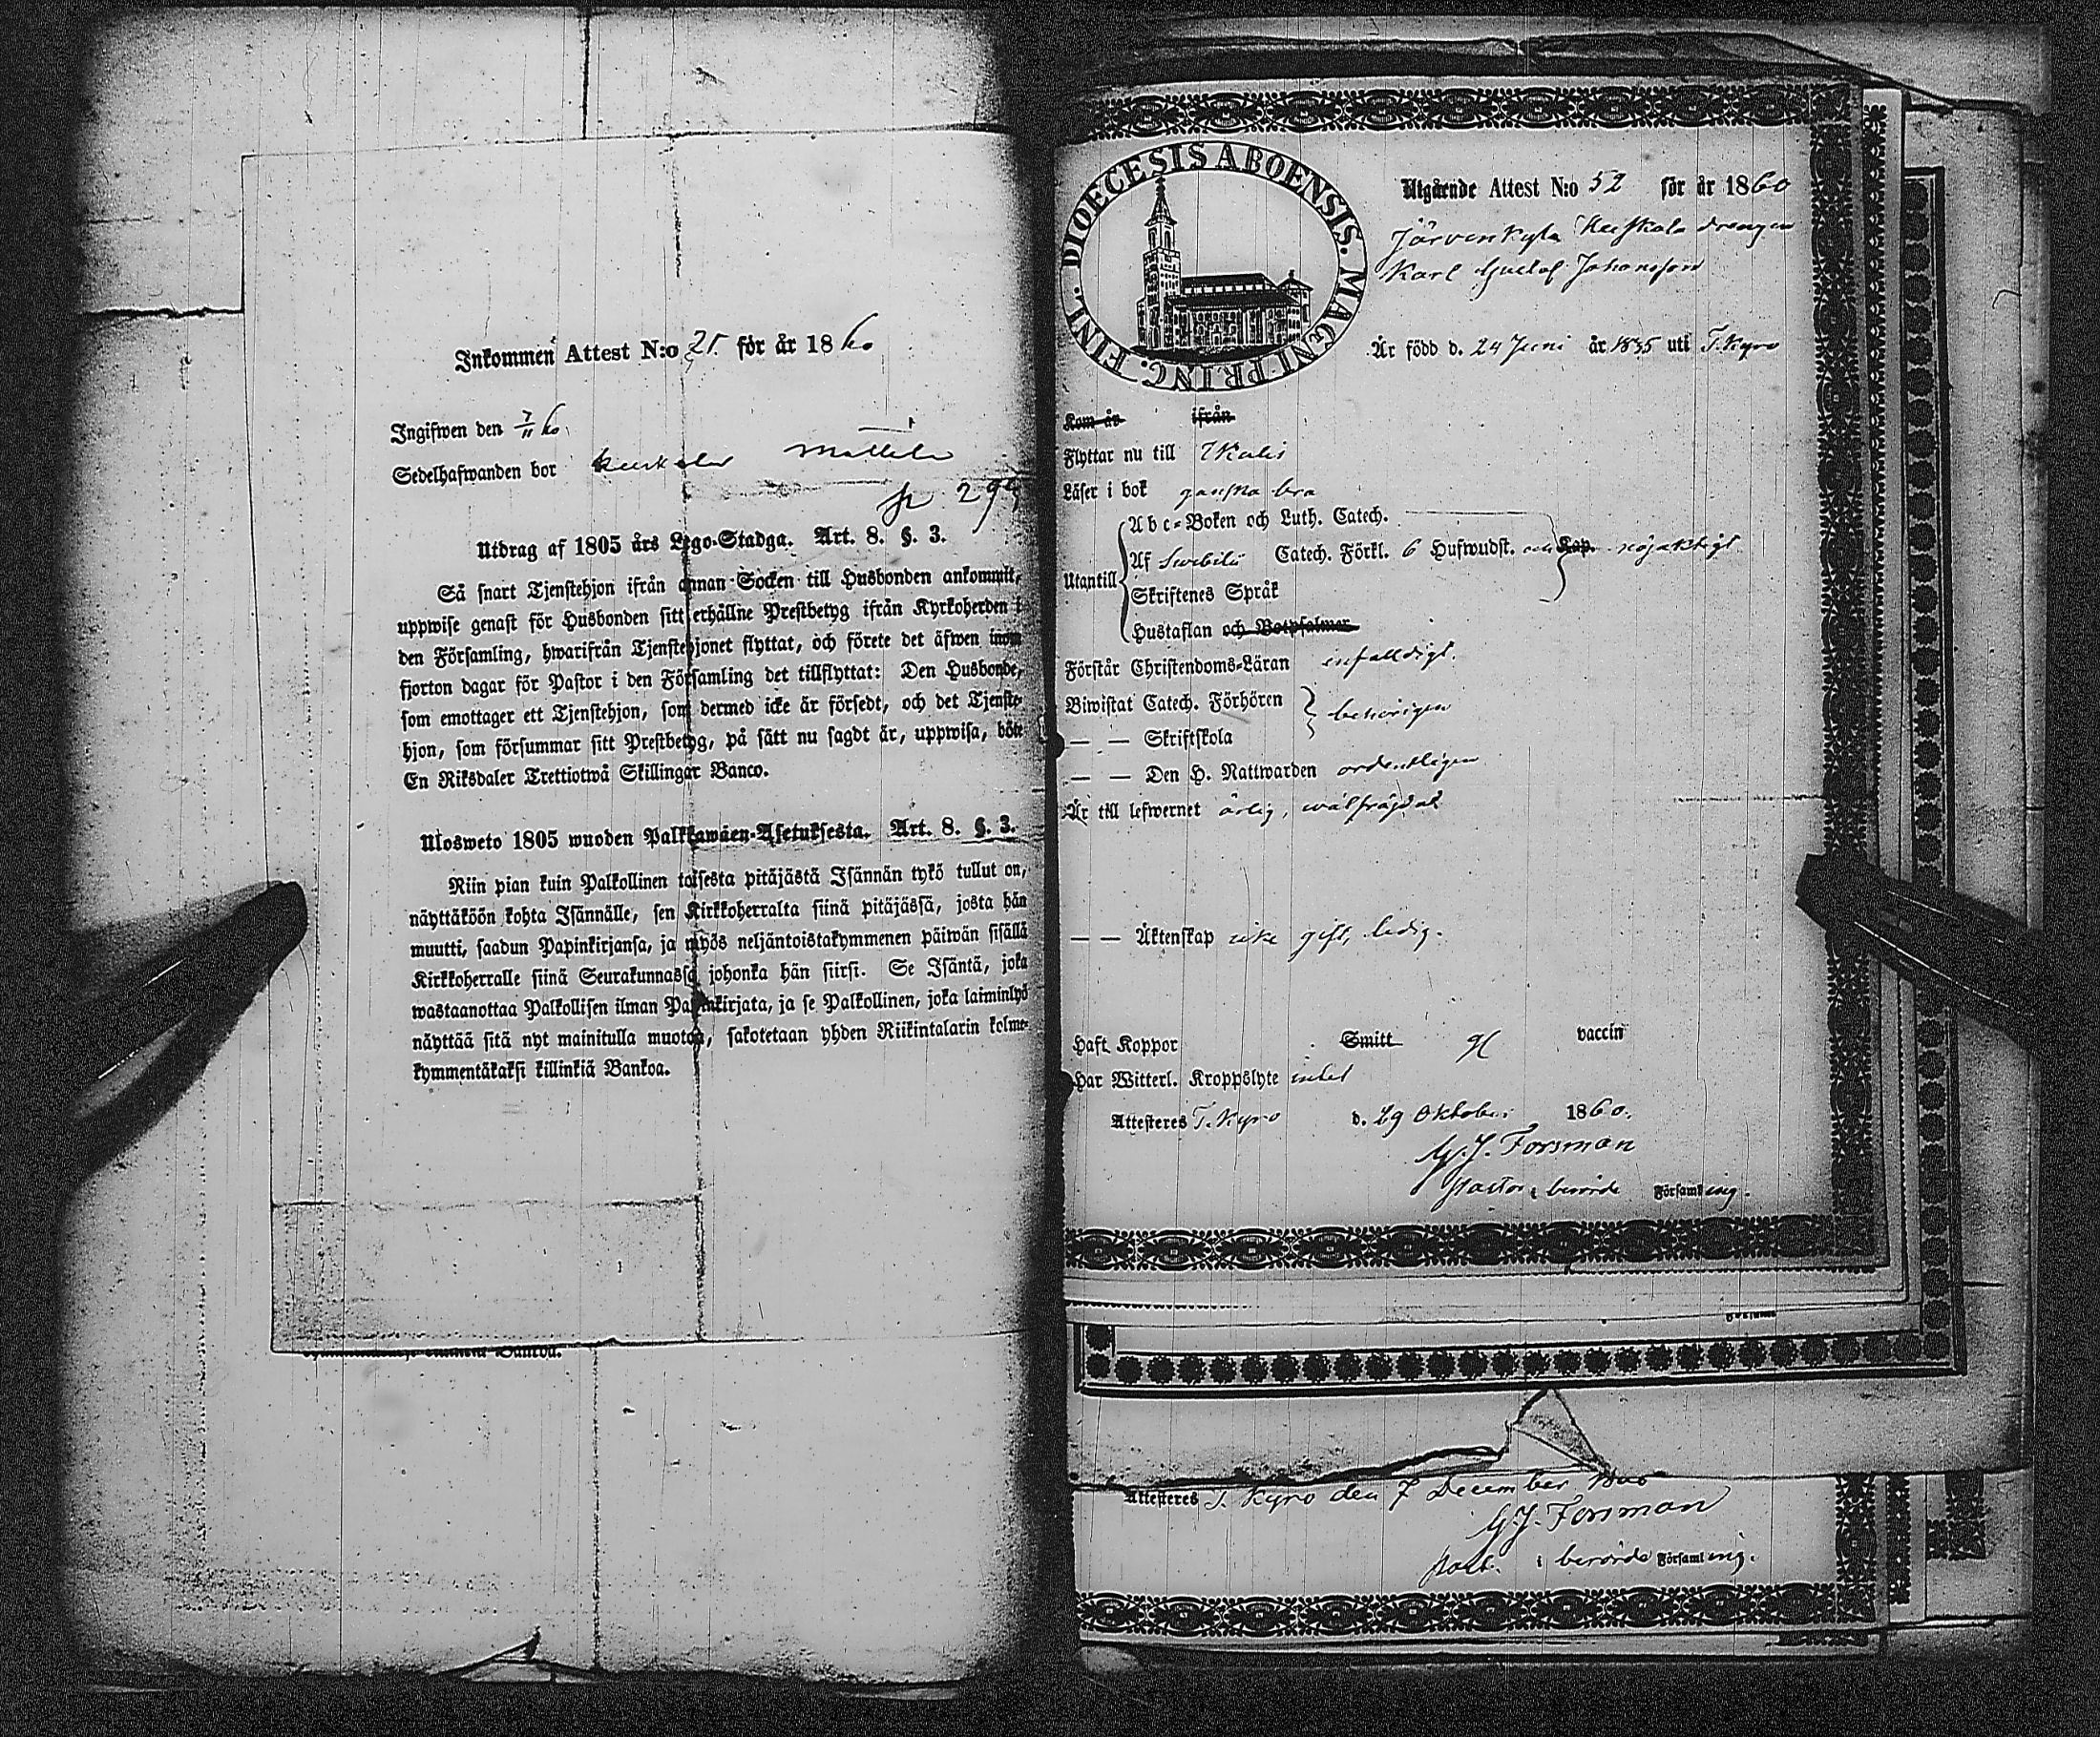 Inkommen Attest N:o 21. för år 1860
Ingifwen den 7/11 60.
Sedelhafwanden bor Mattila
Utdrag af 1805 års Lego-Stadga. Art. 8. §. 3.
Så snart Tjenstehjon ifrån annan Socken till Husbonden ankommit,
uppwise genast för Husbonden sitt erhållne Prestbetyg ifrån Kyrkoherden i
den Församling, hwarifrån Tjenstehjonet flyttat, och förete det äfwen inom
fjorton dagar för Pastor i den Församling det tillflyttat: Den Husbonde,
som emottager ett Tjenstehjon, som dermed icke är försedt, och det Tjenste-
hjon, som försummar sitt Prestbetyg, på sätt nu sagdt är, uppwisa, böte
En Riksdaler Trettiotwå Skillingar Banco.
Ulosweto 1805 wuoden Palkkawäen-Asetuksesta. Art. 8. §. 3.
Niin pian kuin Palkollinen toisesta pitäjästä Isännän tykö tullut on,
näyttäköön kohta Isännälle, sen Kirkkoherralta siinä pitäjässä, josta hän
muutti, saadun Papinkirjansa, ja myös neljäntoistakymmenen päiwän sisällä
Kirkkoherralle siinä Seurakunnassa johonka hän siirsi. Se Isäntä, joka
wastaanottaa Palkollisen ilman Papinkirjata, ja se Palkollinen, joka laiminlyö
näyttää sitä nyt mainitulla muotoa, sakotetaan yhden Riikintalarin kolme-
kymmentäkaksi killinkiä Bankoa.
DIOECESIS ABOENSIS. MAGNI PRINC. FINL.
Utgående Attest N:o 52 för år 1860
Järvenkylä Keskala drengen
Karl Gustaf Johansson
Är född d. 24 Juni år 1835 uti T.Kyro
Kom år ifrån
Flyttar nu till Ikalis
Läser i bok ganska bra
Utantill
Abc-Boken och Luth. Catech.
Af Swebilii Catech. Förkl. 6 Hufwudst. och Kap. nöjaktigt
Skriftenes Språk
Hustaflan och Botpsalmer
Förstår Christendoms-Läran enfalldigt.
Biwistat Catech. Förhören behörigen
— — Skriftskola
— — Den H. Nattwarden ordentligen
Är till lefwernet ärlig, wälfräjdad
— — Äktenskap icke gift, ledig.
Haft Koppor Smitt vaccin
Har Witterl. Kroppslyte intet
Attesteres T. Kyro d. 29 Oktober 1860.
G. J. Forsman
Pastor i berörde Församling.
Attesteres T. Kyro den 7 December 1860
G. J. Forsman
past. i berörde Församling.